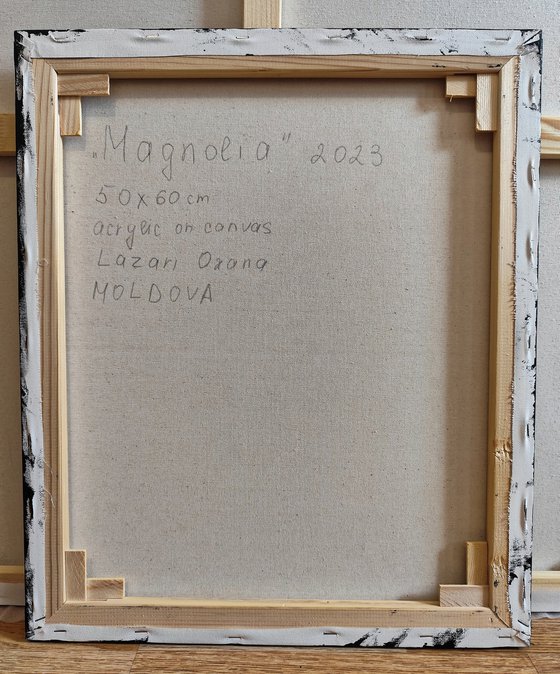 „Magnolia" 2023
50x60 cm
acrylic on canvas
Lazari Oxana
MOLDOVA